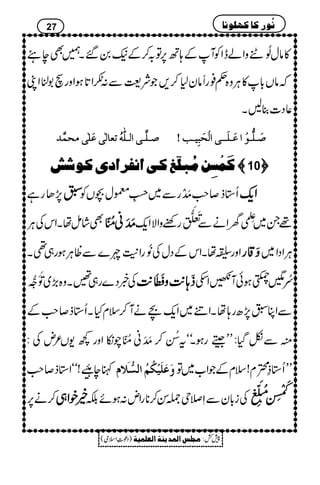 نُور کا کھلونا
27
کا مال لُوٹنے والے ڈاکو آپ کے ہاتھ پر توبہ کر کے نیک بن گئے۔ ہمیں بھی چاہئے
کہ ماں باپ کا ہر وہ حکم فوراً مان لیا کریں جو شریعت سے نہ ٹکراتا ہو اور سچ بولنا اپنی
عادت بنا لیں۔
صَلُّوْا عَلَی الْحَبِیْب ! صلَّی اللّٰہُ تعالٰی عَلٰی محمَّد
﴿10﴾ کَمْسِن مُبلِّغ کی انفرادی کوشش
ایک اُستاذ صاحب مدرَسے میں حسبِ معمول بچوں کو سبق پڑھا رہے
تھے جن میں علمی گھرانے سے تَعَلُّق رکھنے والا ایک مَدَنی مُنّا بھی شامل تھا۔ اس کی ہر
ہر ادا میں وقار اور سلیقہ تھا۔ اس کے دل کی نُورانیت چہرے سے ظاہر ہو رہی تھی۔
سُرمگیں چمکتی ہوئی آنکھیں اسکی ذہانت و فطانت کی خبر دے رہی تھیں۔ وہ بڑی توجُّہ
سے اپنا سبق پڑھ رہا تھا۔ اتنے میں ایک بچّے نے آکر سلام کیا۔ اُستاذ صاحب کے
منہ سے نکل گیا: ’’جیتے رہو۔‘‘ یہ سُن کر مَدَنی مُنّا چونکا اور کچھ یوں عرض کی :
’’اُستاذِ محترم! سلام کے جواب میں تو وَعَلَیْکُمُ السَّلام کہنا چاہیے!‘‘ استاذ صاحب
کَمْسِن مُبلِّغ کی زبان سے اِصلاحی جملہ سُن کر ناراض نہ ہوئے بلکہ خیر خواہی کرنے پر
پیش کش: مجلس المدینۃ العلمیۃ (دعوتِ اسلامی)